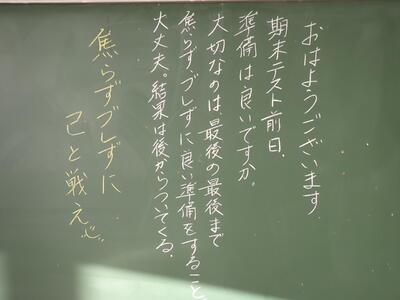 おはようございます
期末テスト前日.
準備は良いですか。
大切なのは、最後の最後まで
焦らずブレずに良い準備をすること。
大丈夫。結果は後からついてくる.
焦らずブレずに
己と戦え